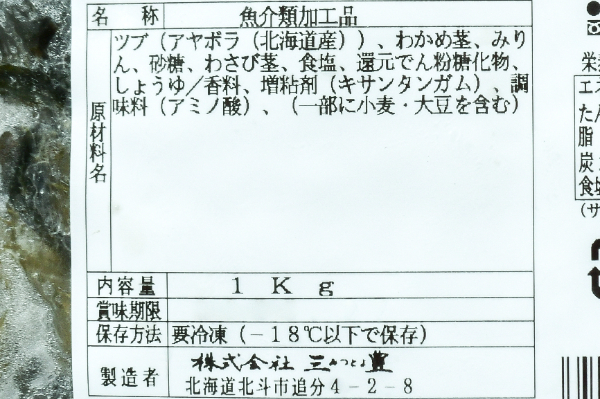 名 称 魚介類加工品
原材料名
ツブ（アヤボラ（北海道産））、わかめ茎、みり
ん、砂糖、わさび茎、食塩、還元でん粉糖化物、
しょうゆ／香料、増粘剤（キサンタンガム）、調
味料（アミノ酸）、（一部に小麦・大豆を含む）
内容量 1Kg
賞味期限
保存方法 要冷凍（－18℃以下で保存）
製造者 株式会社 三かつとよ豊
北海道北斗市追分4－2－8
栄
エネ
たん
脂
炭
食塩
（サ